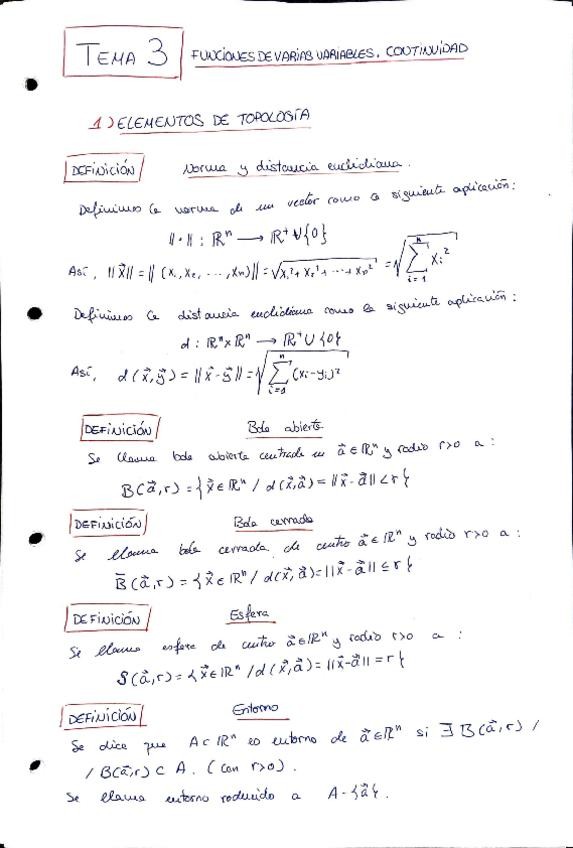 TEMA 3 FUNCIONES DE VARIAS VARIABLES. CONTINUIDAD
1) ELEMENTOS DE TOPOLOGÍA
DEFINICIÓN Norma y distancia euclidiana.
Definimos la norma de un vector como la siguiente aplicación:
||·|| : ℝⁿ ⟶ ℝ⁺ ∪ {0}
Así, ||x⃗|| = ||(x₁, x₂, ..., xₙ)|| = √(x₁² + x₂² + ... + xₙ²) = √(∑ᵢ₌₁ⁿ xᵢ²)
Definimos la distancia euclidiana como la siguiente aplicación:
d : ℝⁿ × ℝⁿ ⟶ ℝ⁺ ∪ {0}
Así, d(x⃗, y⃗) = ||x⃗ - y⃗|| = √(∑ᵢ₌₁ⁿ (xᵢ - yᵢ)²)
DEFINICIÓN Bola abierta
Se llama bola abierta centrada en a⃗ ∈ ℝⁿ y radio r>0 a :
B(a⃗, r) = {x⃗ ∈ ℝⁿ / d(x⃗, a⃗) = ||x⃗ - a⃗|| < r}
DEFINICIÓN Bola cerrada
Se llama bola cerrada de centro a⃗ ∈ ℝⁿ y radio r>0 a :
B̅(a⃗, r) = {x⃗ ∈ ℝⁿ / d(x⃗, a⃗) = ||x⃗ - a⃗|| ≤ r}
DEFINICIÓN Esfera
Se llama esfera de centro a⃗ ∈ ℝⁿ y radio r>0 a :
S(a⃗, r) = {x⃗ ∈ ℝⁿ / d(x⃗, a⃗) = ||x⃗ - a⃗|| = r}
DEFINICIÓN Entorno
Se dice que A ⊂ ℝⁿ es entorno de a⃗ ∈ ℝⁿ si ∃ B(a⃗, r) /
/ B(a⃗, r) ⊂ A. (con r>0).
Se llama entorno reducido a A - {a⃗}.